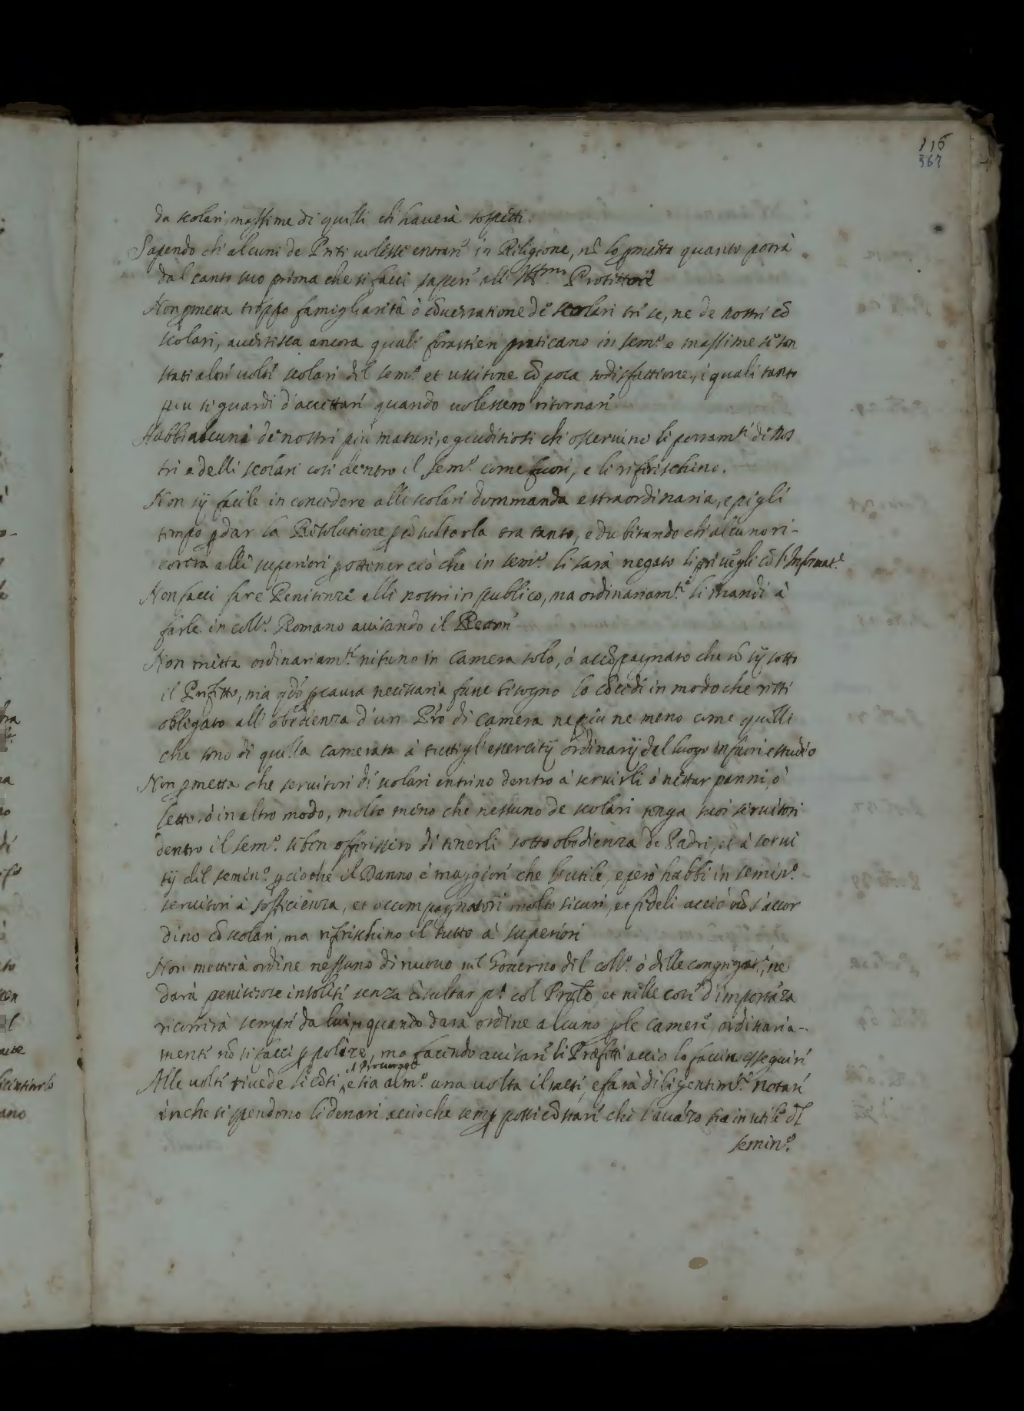 116
367
da scolari massime di quelli ch' haverà sospetti.
Sapendo ch' alcuni de Pnti volesse entrar' in Religione, nõ lo pmetta quanto potrà
dal canto suo prima che si facci saper' all' Ill.mo Protettore
Non pmetta troppo famigliarità ò cõversatione de scolari trà se, ne de nostri cõ
scolari, avertisca ancora quali forastieri praticano in sem.o e massime se son
stati altri volte scolari del sem.o et uscitine cõ poca sodisfattione, i quali tanto
piu si guardi d'accettar' quando volessero ritornar'
Habbi alcuni de nostri più maturi, e giuditiosi che osservino li portam.ti di nos
tri e delli scolari cosi dentro il sem.o come fuori, e li riferischino.
Non sij facile in concedere alli scolari dommanda estraordinaria, e pigli
tempo p dar la Risolutione, e dubitando ch' alcuno ri-
correrà alli superiori p ottener ciò che in sem.o li sarà negato li
Non facci fare Penitenze alli nostri in publico, ma ordinariam.te li mandi à
farle in coll.o Romano avisando il Rettor'
Non metta ordinariam.te nissuno in Camera solo, ò accõpagnato che nõ sij sotto
il Prefetto, ma qdo p causa necessaria fusse bisogno lo cõcedi in modo che resti
obligato all' obedienza d'un Pfto di camera ne più ne meno come quelli
che sono di quella camerata à tutti gl' essercitij ordinarij del luogo
Non pmetta che servitori di scolari entrino dentro à servirli ò nettar panni, ò
letto, ò in altro modo, molto meno che nessuno de scolari tenga suoi servitori
dentro il sem.o se ben offerissero di tenerli sotto obedienza de Padri, et à servi
tij del semin.o p cioche il Danno è maggiore che l'utile, e però habbi in semin.o
servitori à sofficienza, et accompagnatori molto sicuri, et fideli acciò nõ s'accor
dino cõ scolari, ma riferischino il tutto à superiori
Non metterà ordine nessuno di nuovo nel Governo del coll.o ò delle congregat.i, ne
darà penitenze insolite senza cõsultar p.a col Prfto, et nelle cose d'importãza
ricorrerà sempre da lui, quando darà ordine alcuno p le camere, ordinaria-
mente nõ si facci p polize, ma facendo avisare li Prefetti accio lo faccino esseguire
Alle volte rivede li cõti al Procurator e sia alm.o una volta il mese, e farà diligentem.te notare
in che si spendono li denari accioche semp possi cõstare che l'avãzo sia in utile del
semin.o